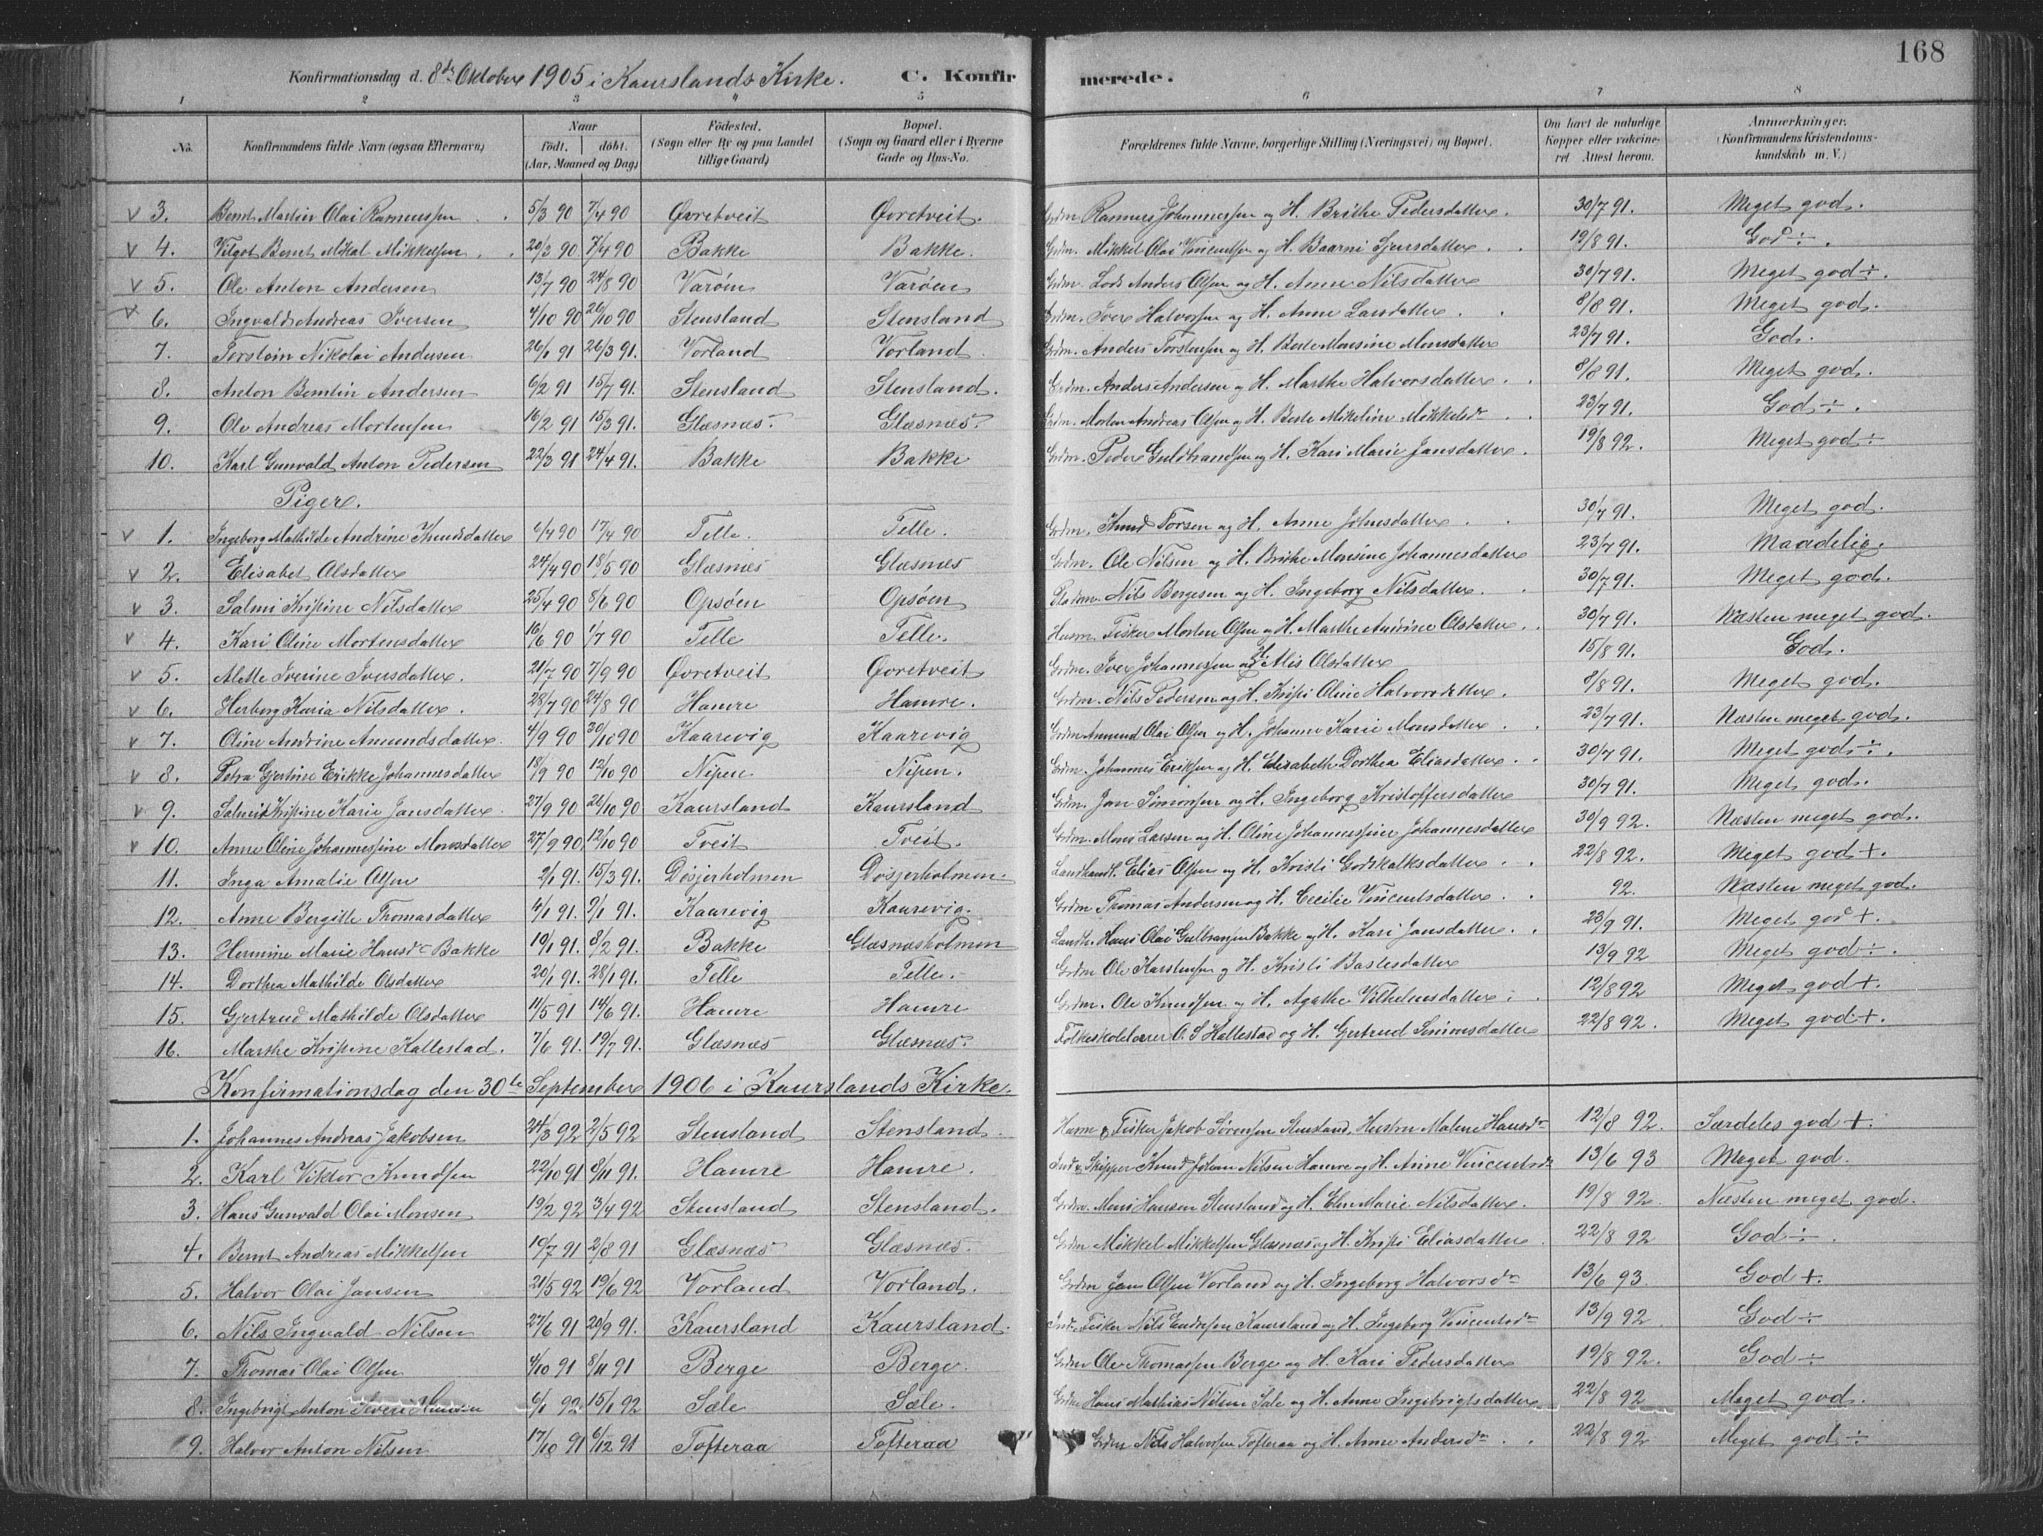 168
Konfirmationsdag d. 8de Oktober 1905 i Kaurslands Kirke. C. Konfirmerede.
1 2 3 4 5 6 7 8
No. Konfirmandens fulde Navn (ogsaa Efternavn) Naar födt. döbt. (Aar, Maaned og Dag) Födested. (Sogn eller By og paa Landet tillige Gaard) Bopæl. (Sogn og Gaard eller i Byerne Gade og Hus-No. Forældrenes fulde Navne, borgerlige Stilling (Næringsvei) og Bopæl. Om havt de naturlige Kopper eller vakcineret Attest herom. Anmerkninger. (Konfirmandens Kristendomskundskab m. V.)
v 3. Bernt Martin Olai Rasmussen 5/3 90 7/4 90 Øvretveit Øvretveit. Grdm. Rasmus Johannessen og H. Brithe Pedersdatter 30/7 91. Meget god.
v 4. Vilgot Bernt Mikal Mikkelsen 20/3 90 7/4 90 Bakke Bakke. Grdm. Mikkel Olai Vincentsen og H. Baarni Sjursdatter 19/8 91. God ÷.
v 5. Ole Anton Andersen 13/7 90 24/8 90 Varöen Varöen Grdm. Lods Anders Olsen og H. Anne Nilsdatter 30/7 91. Meget god ÷.
v 6. Ingvald Andreas Iversen 4/10 90 26/10 90 Stensland Stensland Grdm. Iver Halvorsen og H. Anne Larsdatter 8/8 91. Meget god.
7. Torstein Nikolai Andersen 26/1 91 26/3 91. Vorland Vorland Grdm. Anders Torstensen og H. Berte Monsine Monsdatter 23/7 91. God.
8. Anton Berntin Andersen 6/2 91 15/7 91. Stensland Stensland. Grdm. Anders Andersen og H. Marthe Halvorsdatter 8/8 91. Meget god.
9. Ole Andreas Mortensen 16/2 91 15/3 91. Glæsnæs Glæsnæs Grdm. Morten Andreas Olsen og H. Berte Mikeline Mikkelsdr 23/7 91. God ÷.
10. Karl Gunvald Anton Pedersen 22/3 91 24/4 91. Bakke Bakke Grdm. Peder Guldbrandsen og H. Kari Marie Jansdatter 19/8 92. Meget god ÷
Piger.
v 1. Ingeborg Mathilde Andrine Knudsdatter 6/4 90 17/4 90 Telle Telle. Grdm. Knud Torsen og H. Anne Johnsdatter 30/7 91. Meget god.
v 2. Elisabet Olsdatter 24/4 90 18/5 90 Glæsnæs Glæsnæs Grdm. Ole Nilsen og H. Brithe Monsine Johannesdatter 23/7 91. Maadelig.
v 3. Salmi Kristine Nilsdatter 25/4 90 8/6 90 Opsöen Opsöen Nils Børgesen og H. Ingeborg Nilsdatter 30/7 91. Meget god.
v 4. Kari Oline Mortensdatter 16/6 90 1/7 90 Telle Telle. Husm. Fisker Morten Olsen og H. Marthe Andrine Olsdatter 30/7 91. Næsten meget god.
v 5. Alette Iverine Iversdatter 21/7 90 7/9 90 Øvretveit Øvretveit Grdm. Iver Johannessen og H. Alis Olsdatter 15/8 91. God.
v 6. Herborg Karia Nilsdatter. 28/7 90 24/8 90 Hamre Hamre. Grdm. Nils Pedersen og H. Kristi Oline Halvorsdatter. 8/8 91. Meget god.
v 7. Oline Andrine Amundsdatter 4/9 90 30/10 90 Kaarevig Kaarevig Grdm Amund Olai Olsen og H. Johanne Karie Monsdatter 23/7 91. Næsten meget god.
v 8. Petra Gjertine Erikke Johannesdatter 18/9 90 12/10 90 Nipen Nipen. Grdm. Johannes Eriksen og H. Elisabeth Dorthea Eliasdatter 30/7 91. Meget god ÷.
v 9. Kristine Karie Jansdatter 27/9 90 26/10 90 Kaursland Kaursland Grdm. Jan Simonsen og H. Ingeborg Kristoffersdatter 30/7 91. Meget god.
v 10. Anne Oline Johannessine Monsdatter 27/9 90 12/10 90 Tveit Tveit. Grdm. Mons Larsen og H. Oline Johannessine Johannesdatter 30/9 92. Næsten meget god.
11. Inga Amalie Olsen 2/1 91. 15/3 91. Døsjerholmen Døsjerholmen. Landhandl. Elias Olsen og H. Kristi Godskalksdatter 22/8 92. Meget god +.
12. Anne Bergitte Thomasdatter 4/1 91. 9/1 91. Kaarevig Kaarevig. Grdm Thomas Andersen og H. Cecilie Vincentsdatter 92. Næsten meget god.
13. Hermine Marie Hansdr Bakke 19/1 91. 8/2 91. Bakke Glæsnæsholmen Landh. Hans Olai Gulbransen Bakke og H. Kari Jansdatter 23/9 91. Meget god +
14. Dorthea Mathilde Olsdatter 20/1 91. 28/1 91. Telle Telle. Grdm Ole Karstensen og H. Kristi Bastesdatter 13/9 92 Meget god ÷.
15. Gjertrud Mathilde Olsdatter 11/5 91 14/6 91. Hamre Hamre Grdm. Ole Knudsen og H. Agathe Vilhelmsdatter 12/8 92 Meget god +.
16. Marthe Kristine Hallestad. 7/6 91. 19/7 91. Glæsnæs Glæsnæs. Folkeskolelærer O. S. Hallestad og H. Gjertrud Simonsdatter 22/8 92. Meget god +.
Konfirmationsdag den 30te September 1906 i Kaurslands Kirke.
1. Johannes Andreas Jakobsen 24/3 92 2/5 92 Stensland Stensland. Husm & Fisker Jakob Sørensen Stensland, Hustru Malene Hansdr 12/8 92. Særdeles god +.
2. Karl Viktor Knudsen 22/10 91 8/11 91. Hamre Hamre. Ind. Skipper Knud Johan Nilsen Hamre og H. Anne Vincentsdr 13/6 93 Meget god.
3. Hans Gunvald Olai Monsen 19/2 92 3/4 92 Stensland Stensland. Grdm. Mons Hansen Stensland og H. Elen Marie Nilsdatter. 19/8 92. Næsten meget god.
4. Bernt Andreas Mikkelsen 19/7 91 2/8 91 Glæsnæs Glæsnæs. Grdm Mikkel Mikkelsen Glæsnæs og H. Kristi Eliasdatter 22/8 92 God ÷.
5. Halvor Olai Jansen 21/5 92 19/6 92 Vorland Vorland. Grdm Jan Olsen Vorland og H. Ingeborg Halvorsdr 13/6 93 God +.
6. Nils Ingvald Nilsen 27/6 91 20/9 91. Kaursland Kaursland. Ind. Fisker Nils Endresen Kaursland og H. Ingeborg Vincentsdr 13/9 92 God ÷
7. Thomas Olai Olsen 4/10 91 8/11 91 Berge Berge. Grdm Ole Thomassen Berge og H. Kari Pedersdatter 19/8 92. God ÷
8. Ingebrigt Anton Severi Hansen 6/1 92 15/1 92 Sæle Sæle. Grdm Hans Mathias Nilsen Sæle og H. Anne Ingebrigtsdatter 22/8 92 Meget god.
9. Halvor Anton Nilsen 17/10 91 6/12 91 Tofteraa Tofteraa Grdm Nils Halvorsen Tofteraa og H. Anne Andersdr 22/8 92. Meget god ÷